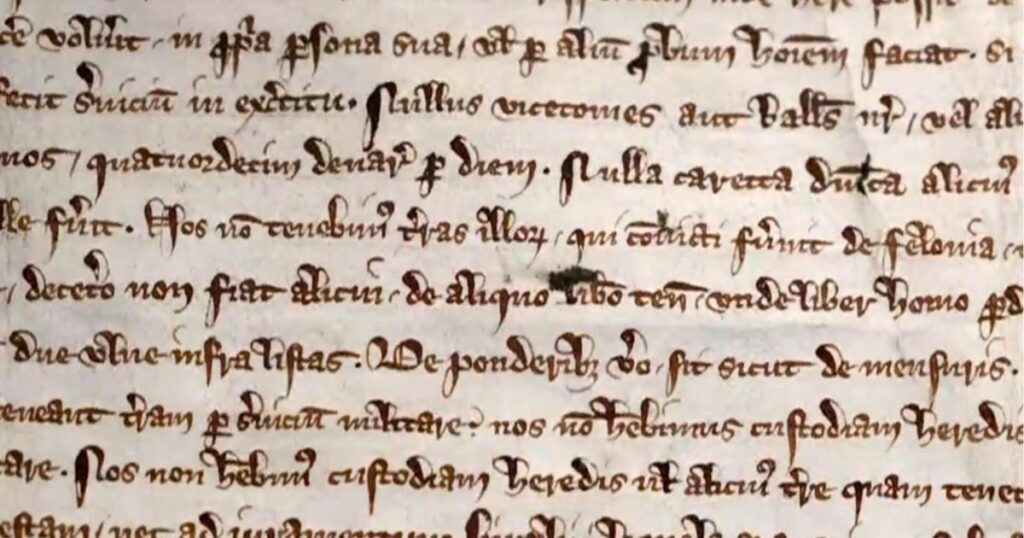 cē voluit · in ꝓpͥa ꝑsona sua, vł ꝑ aliū ꝓbum hoīem faciat · si
fecit ẜuiciū in exc̄itu · Nullus vicecomes aut Ballꝰ nr̄, vel ali
nos, quatuordecim denar̄ ꝑ diem · Nulla carecta dn̄ica alicuiꝰ
lle fūit · Nos nō tenebimꝰ t̄ras illoꝝ, qui cōuicti fūint de felonia,
, decet̄o non fiat alicui, de aliquo lib̄o ten̄, vnde liber homo ꝑd
due vlne infra listas · De ponderibꝫ v̄o, sit sicut de mensuris ·
teneant t̄ram ꝑ ẜuiciū militare, nos nō hēbimus custodiam heredis
tare · Nos non hēbimꝰ custodiam heredis vł alicuiꝰ t̄re quam tenet
nec ad iuramentum